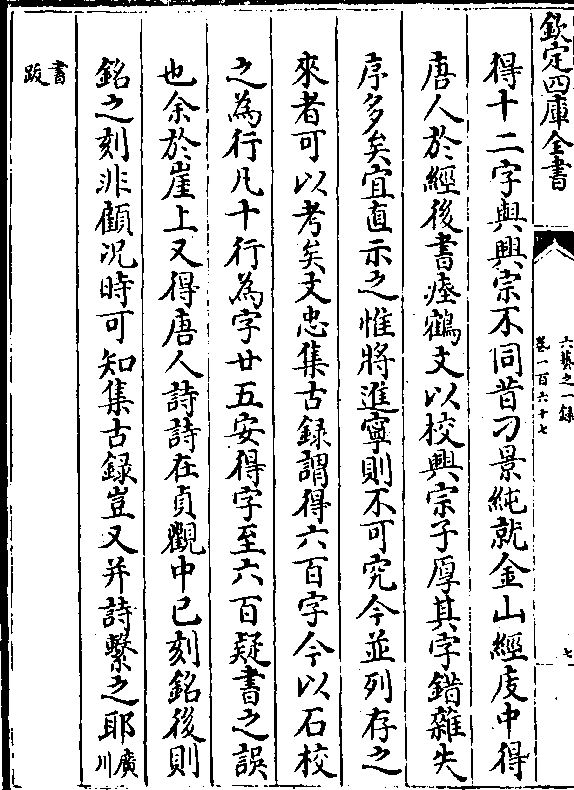 欽定四庫全書
六藝之一録
卷一百六十七
七
得十二字與興宗不同昔刁景純就金山經庋中得
唐人於經後書瘞鶴文以校興宗子厚其字錯雜失
序多矣宜直示之惟將進寧則不可究今並列存之
來者可以考矣文忠集古録謂得六百字今以石校
之為行凡十行為字廿五安得字至六百疑書之誤
也余於崖上又得唐人詩詩在貞觀中已刻銘後則
銘之刻非顧况時可知集古録豈又并詩繫之耶廣川
書跋